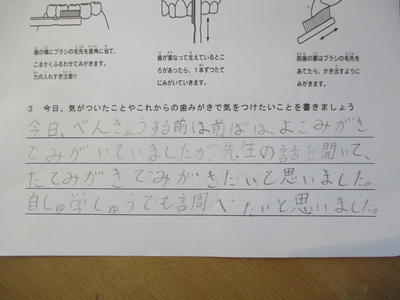 歯の横にブラシの毛先を直角に当て、
こまかくふるわせてみがきます。
力の入れすぎ注意!!
歯が重なって生えているとこ
ろがあったら、1本ずつたて
にみがいていきます。
前歯の裏はブラシの毛先を
あてたら、かき出すように
みがきます。
3 今日、気がついたことやこれからの歯みがきで気をつけたいことを書きましょう
今日、べんきょうする前は前ばは、よこみがき
でみがいていましたが、先生の話を聞いて、
たてみがきでみがきたいと思いました。
自しゅ学しゅうでも調べたいと思いました。